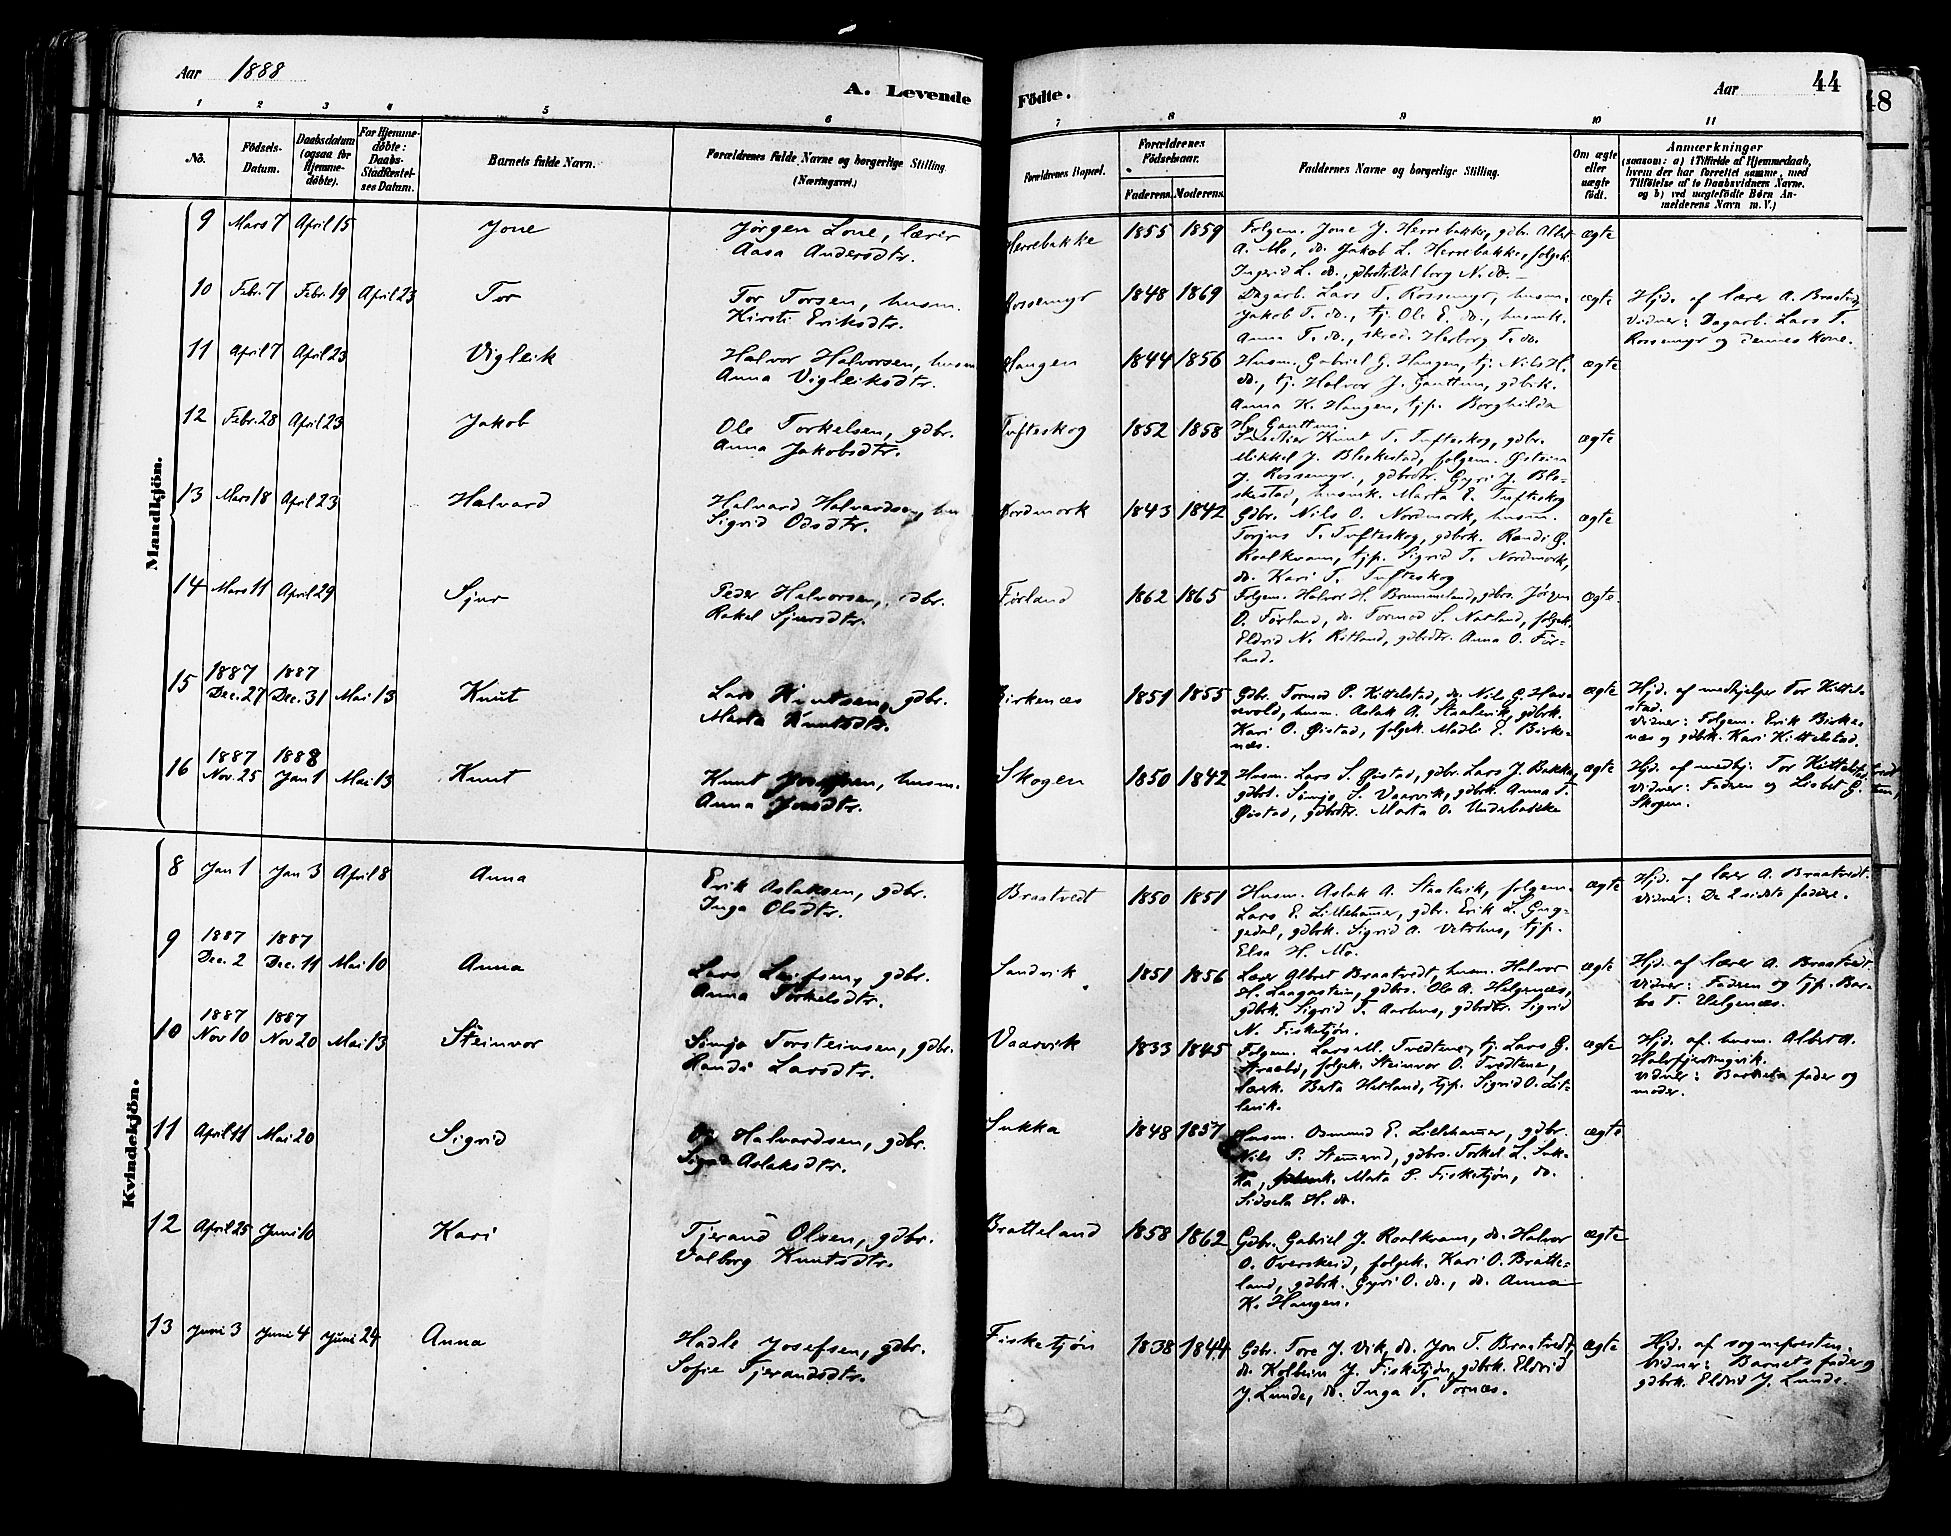 Aar 1888
A. Levende Födte.
Aar 44
48
1 2 3 4 5 6 7 8 9 10 11
No.
Födsels-Datum.
Daabsdatum (ogsaa for Hjemmedöbte).
For Hjemmedöbte: Daabs-Stadfæstelses Datum.
Barnets fulde Navn.
Forældrenes fulde Navne og borgerlige Stilling. (Næringsvei.)
Forældrenes Bopæl.
Forældrenes Födselsaar.
Faderens. Moderens.
Faddernes Navne og borgerlige Stilling.
Om ægte eller uægte födt.
Anmærkninger
(saasom: a) i Tilfælde af Hjemmedaab, hvem der har forrettet samme, med Tilföielse af to Daabsvidners Navne. og b) ved uægtefödte Börn Anmelderens Navn m. V.)
Mandkjön.
9 Mars 7 April 15 Jone
Jørgen Lone, lærer
Aasa Andersdtr.
Herrebakke 1855 1859
Folgem. Jone J. Herrebakke, gdbr. Albt
A. Mo, do. Jakob L. Herrebakke, folgek.
Ingerid L. do., gdbrdtr. Valborg N. do.
ægte
10 Febr. 7 Febr. 19 April 23 Tor
Tor Torsen, husm.
Kirsti Eriksdtr.
Rossemyr 1848 1869
Dagarb. Lars T. Rossemyr, husm.
Jakob T. do., tj. Ole E. do., husmk.
Anna T. do., skræd. Herborg T. do.
ægte
Hjd. af lærer A. Braatvedt
Vidner: Dagarb. Lars T.
Rossemyr og dennes kone.
11 April 7 April 23 Vigleik
Halvor Halvorsen, husm
Anna Vigleiksdtr.
Haugen 1844 1856
Husm. Gabriel G. Haugen, tj. Nils H.
do., tj. Halvor J. Gauttun, gdbrk.
Anna K. Haugen, tjp. Borghilda
H. Gauttun.
ægte
12 Febr. 28 April 23 Jakob
Ole Torkelsen, gdbr.
Anna Jakobsdtr.
Tufteskog 1852 1858
Knut T. Tufteskog, gdbr.
Mikkel J. Bleskestad, folgem. Øistein
J. Rossemyr, gdbrdtr. Gyri J. Ble-
skestad, husmk. Marta E. Tufteskog
ægte
13 Mars 18 April 23 Halvard
Halvard Halvardsen, hu
Sigrid Odsdtr.
Nordmork 1843 1842
Gdbr. Nils O. Nordmork, husm.
Torjus T. Tufteskog, gdbrk. Randi Ø.
Roalkvam, tjp. Sigrid T. Nordmork,
do. Kari T. Tufteskog
ægte
14 Mars 11 April 29 Sjur
Peder Halvorsen, gdbr.
Rakel Sjursdtr.
Førland 1862 1865
Folgem. Halvor H. Brummeland, gdbr. Jørgen
O. Førland, do. Tormod S. Natland, folgek.
Eldrid N. Østland, gdbrdtr. Anna O. Før-
land.
ægte.
15 1887 Dec. 27 1887 Dec. 31 Mai 13 Knut
Lars Knutsen, gdbr.
Marta Knutsdtr.
Birkenæs 1851 1855
Gdbr. Tormod P. Kittelstad, do. Nils G. Hava
revold, husm. Aslak A. Staalevik, gdbrk.
Kari O. Øistad, folgek. Madli E. Birke-
næs.
ægte
Hjd. af medhjelper Tor Kittel-
stad.
Vidner: Folgem. Erik Birke-
næs og gdbrk. Kari Kittelstad.
16 1887 Nov. 25 1888 Jan 1 Mai 13 Knut
Knut husm.
Anna
Skogen 1850 1842
Husm. Lars S. Øistad, gdbr. Lars J. Bakka,
gdbrs. Sømjo S. Vaarvik, gdbrk. Anna T.
Øistad, gdbrdtr. Marta O. Underbakke
ægte
Hjd. af medhj. Tor Kittelstad
Vidner: Fadren og Lisbet G.
Skogen.
Kvindekjön.
8 Jan 1 Jan 3 April 8 Anna
Erik Aslaksen, gdbr.
Inga Olsdtr.
Braatvedt 1850 1851
Husm. Aslak A. Staalevik, folgem.
Lars E. Lillehamer, gdbr. Erik L. Gug-
gedal, gdbrk. Sigrid A. Vetrhus, tjp.
Elsa H. Mo.
ægte
Hjd. af lær A. Braatvedt.
Vidner: De 2 sidste faddere.
9 1887 Dec. 2 1887 Dec. 11 Mai 10 Anna
Lars Leifsen, gdbr.
Anna Torkelsdtr.
Sandvik 1851 1856
Lærer Albret Braatvedt, husm. Halvor
H. Laagastein, gdbrs. Ole A. Helgenæs,
gdbrk. Sigrid T. Aarhus, gdbrdtr. Sigrid
N. Fisketjøn.
ægte
Hjd. af lærer A. Braatvedt
Vidner: Fadren og tjp. Bar-
bro T. Helgenæs.
10 1887 Nov 10 1887 Nov 20 Mai 13 Steinvor
Sømjo Torsteinsen, gdbr.
Randi Larsdtr.
Vaarvik 1833 1845
Folgem. Lars M. Tvedtene, tj. Lars G.
Straabø, folgek. Steinvor O. Tvedtene,
lærk. Berta Hetland, tjp. Sigrid O. Lit-
levik.
ægte
Hjd. af husm. Albert A.
Halvfjerdingvik.
Vidner: Barnets fader og
moder.
11 April 11 Mai 20 Sigrid
Halvardsen, gdbr.
Sigrid Aslaksdtr.
Sukka 1848 1857
Husm. Osmund E. Lillehamer, gdbr.
Nils P. gdbrs. Torkel L. Suk-
ka, Marta P. Fisketjøn, do.
Sidsela H. do.
ægte
12 April 25 Juni 10 Kari
Tjerand Olsen, gdbr.
Valborg Knutsdtr.
Bratteland 1858 1862
Gdbr. Gabriel J. Roalkvam, do. Halvor
O. Overskeid, folgek. Kari O. Bratte-
land, gdbrk. Gyri O. do., do. Anna
K. Haugen.
ægte
13 Juni 3 Juni 4 Juni 24 Anna
Hadle Josefsen, gdbr.
Sofie Tjerandsdtr.
Fisketjøn 1838 1844
Gdbr. Tore J. Vik, do. Jon T. Braatvedt,
do. Kolbein J. Fisketjøn, gdbrk. Eldrid
J. Lunde, do. Inga T. Fornæs.
ægte
Hjd. af sognepresten.
Vidner: Barnets fader og
gdbrk. Eldrid J. Lunde.